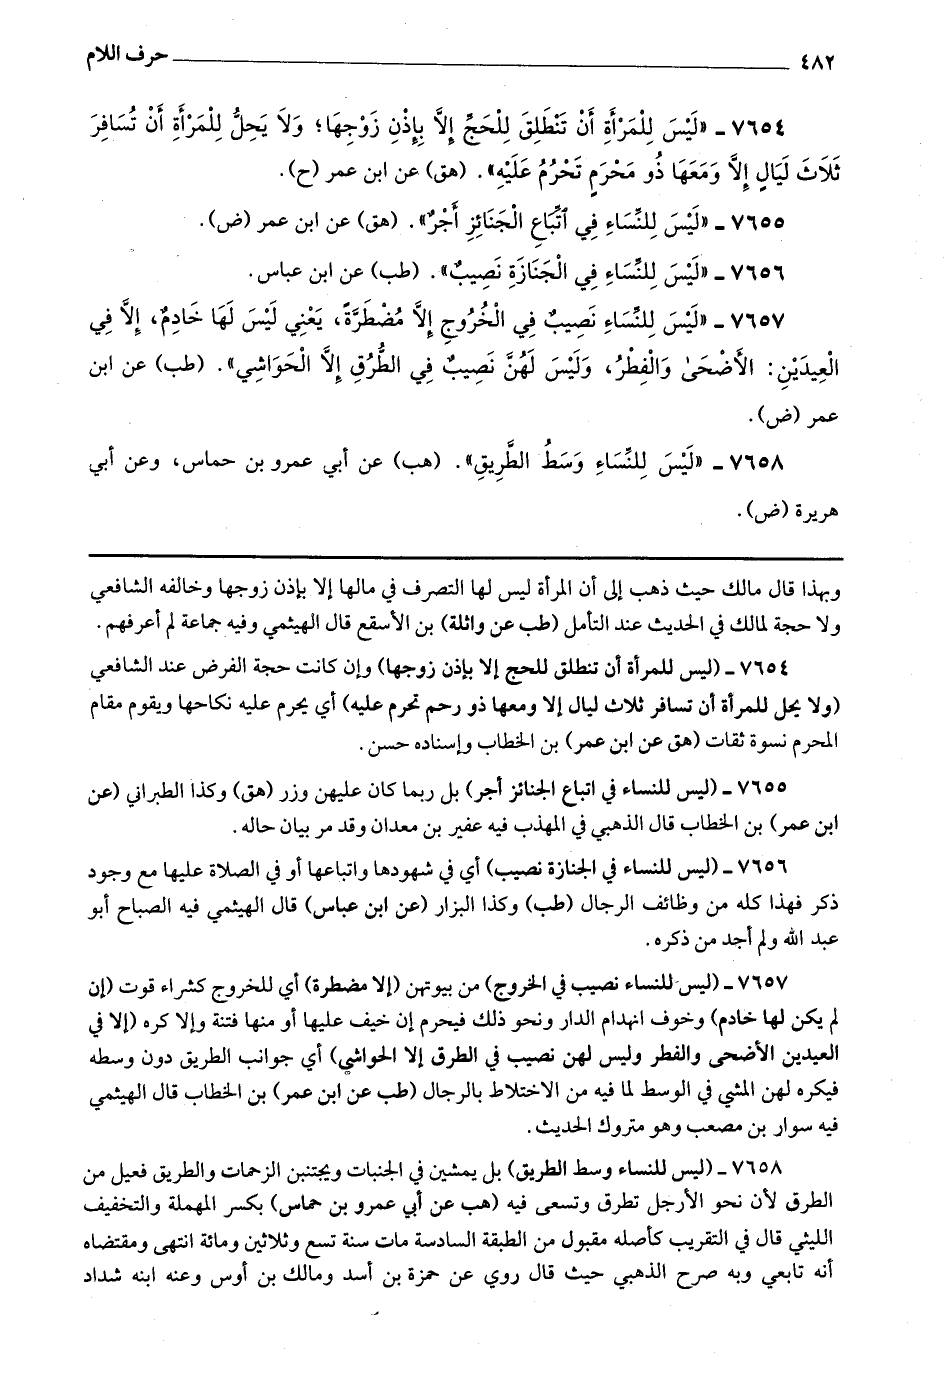 ٤٨٢ حرف اللام
٧٦٥٤ ـ «لَيْسَ لِلْمَرْأَةِ أَنْ تَنْطَلِقَ لِلْحَجِّ إِلَّا بِإِذْنِ زَوْجِهَا؛ وَلاَ يَحِلُّ لِلْمَرْأَةِ أَنْ تُسَافِرَ
ثَلَاثَ لَيَالٍ إِلَّا وَمَعَهَا ذُو مَحْرَمٍ تَحْرُمُ عَلَيْهِ». (هق) عن ابن عمر (ح).
٧٦٥٥ ـ «لَيْسَ لِلنِّسَاءِ فِي ٱتِّبَاعِ الْجَنَائِزِ أَجْرٌ». (هق) عن ابن عمر (ض).
٧٦٥٦ ـ «لَيْسَ لِلنِّسَاءِ فِي الْجَنَازَةِ نَصِيبٌ». (طب) عن ابن عباس.
٧٦٥٧ ـ «لَيْسَ لِلنِّسَاءِ نَصِيبٌ فِي الْخُرُوجِ إِلَّا مُضْطَرَّةً، يَعْنِي لَيْسَ لَهَا خَادِمٌ، إِلَّا فِي
الْعِيدَيْنِ: الأَضْحَىٰ وَالْفِطْرُ، وَلَيْسَ لَهُنَّ نَصِيبٌ فِي الطُّرُقِ إِلَّا الْحَوَاشِي». (طب) عن ابن
عمر (ض).
٧٦٥٨ ـ «لَيْسَ لِلنِّسَاءِ وَسَطُ الطَّرِيقِ». (هب) عن أبي عمرو بن حماس، وعن أبي
هريرة (ض).
وبهذا قال مالك حيث ذهب إلى أن المرأة ليس لها التصرف في مالها إلا بإذن زوجها وخالفه الشافعي
ولا حجة لمالك في الحديث عند التأمل (طب عن واثلة) بن الأسقع قال الهيثمي وفيه جماعة لم أعرفهم.
٧٦٥٤ ـ (ليس للمرأة أن تنطلق للحج إلا بإذن زوجها) وإن كانت حجة الفرض عند الشافعي
(ولا يحل للمرأة أن تسافر ثلاث ليال إلا ومعها ذو رحم تحرم عليه) أي يحرم عليه نكاحها ويقوم مقام
المحرم نسوة ثقات (هق عن ابن عمر) بن الخطاب وإسناده حسن.
٧٦٥٥ ـ (ليس للنساء في اتباع الجنائز أجر) بل ربما كان عليهن وزر (هق) وكذا الطبراني (عن
ابن عمر) بن الخطاب قال الذهبي في المهذب فيه عفير بن معدان وقد مر بيان حاله.
٧٦٥٦ ـ (ليس للنساء في الجنازة نصيب) أي في شهودها واتباعها أو في الصلاة عليها مع وجود
ذكر فهذا كله من وظائف الرجال (طب) وكذا البزار (عن ابن عباس) قال الهيثمي فيه الصباح أبو
عبد الله ولم أجد من ذكره.
٧٦٥٧ ـ (ليس للنساء نصيب في الخروج) من بيوتهن (إلا مضطرة) أي للخروج كشراء قوت (إن
لم يكن لها خادم) وخوف انهدام الدار ونحو ذلك فيحرم إن خيف عليها أو منها فتنة وإلا كره (إلا في
العيدين الأضحى والفطر وليس لهن نصيب في الطرق إلا الحواشي) أي جوانب الطريق دون وسطه
فيكره لهن المشي في الوسط لما فيه من الاختلاط بالرجال (طب عن ابن عمر) بن الخطاب قال الهيثمي
فيه سوار بن مصعب وهو متروك الحديث.
٧٦٥٨ ـ (ليس للنساء وسط الطريق) بل يمشين في الجنبات ويجتنبن الزحمات والطريق فعيل من
الطرق لأن نحو الأرجل تطرق وتسعى فيه (هب عن أبي عمرو بن حماس) بكسر المهملة والتخفيف
الليثي قال في التقريب كأصله مقبول من الطبقة السادسة مات سنة تسع وثلاثين ومائة انتهى ومقتضاه
أنه تابعي وبه صرح الذهبي حيث قال روي عن حمزة بن أسد ومالك بن أوس وعنه ابنه شداد